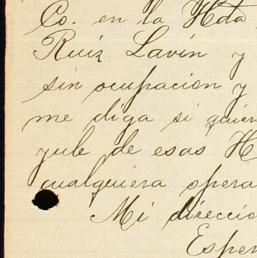 Co. en la Hda
Ruiz Lavin y
sin ocupacion y
me diga si quier
yule de esas H
cualquiera opera
Mi direccio
Esper